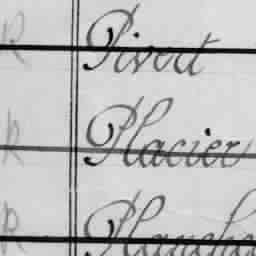 R Pivert
R Placier
R